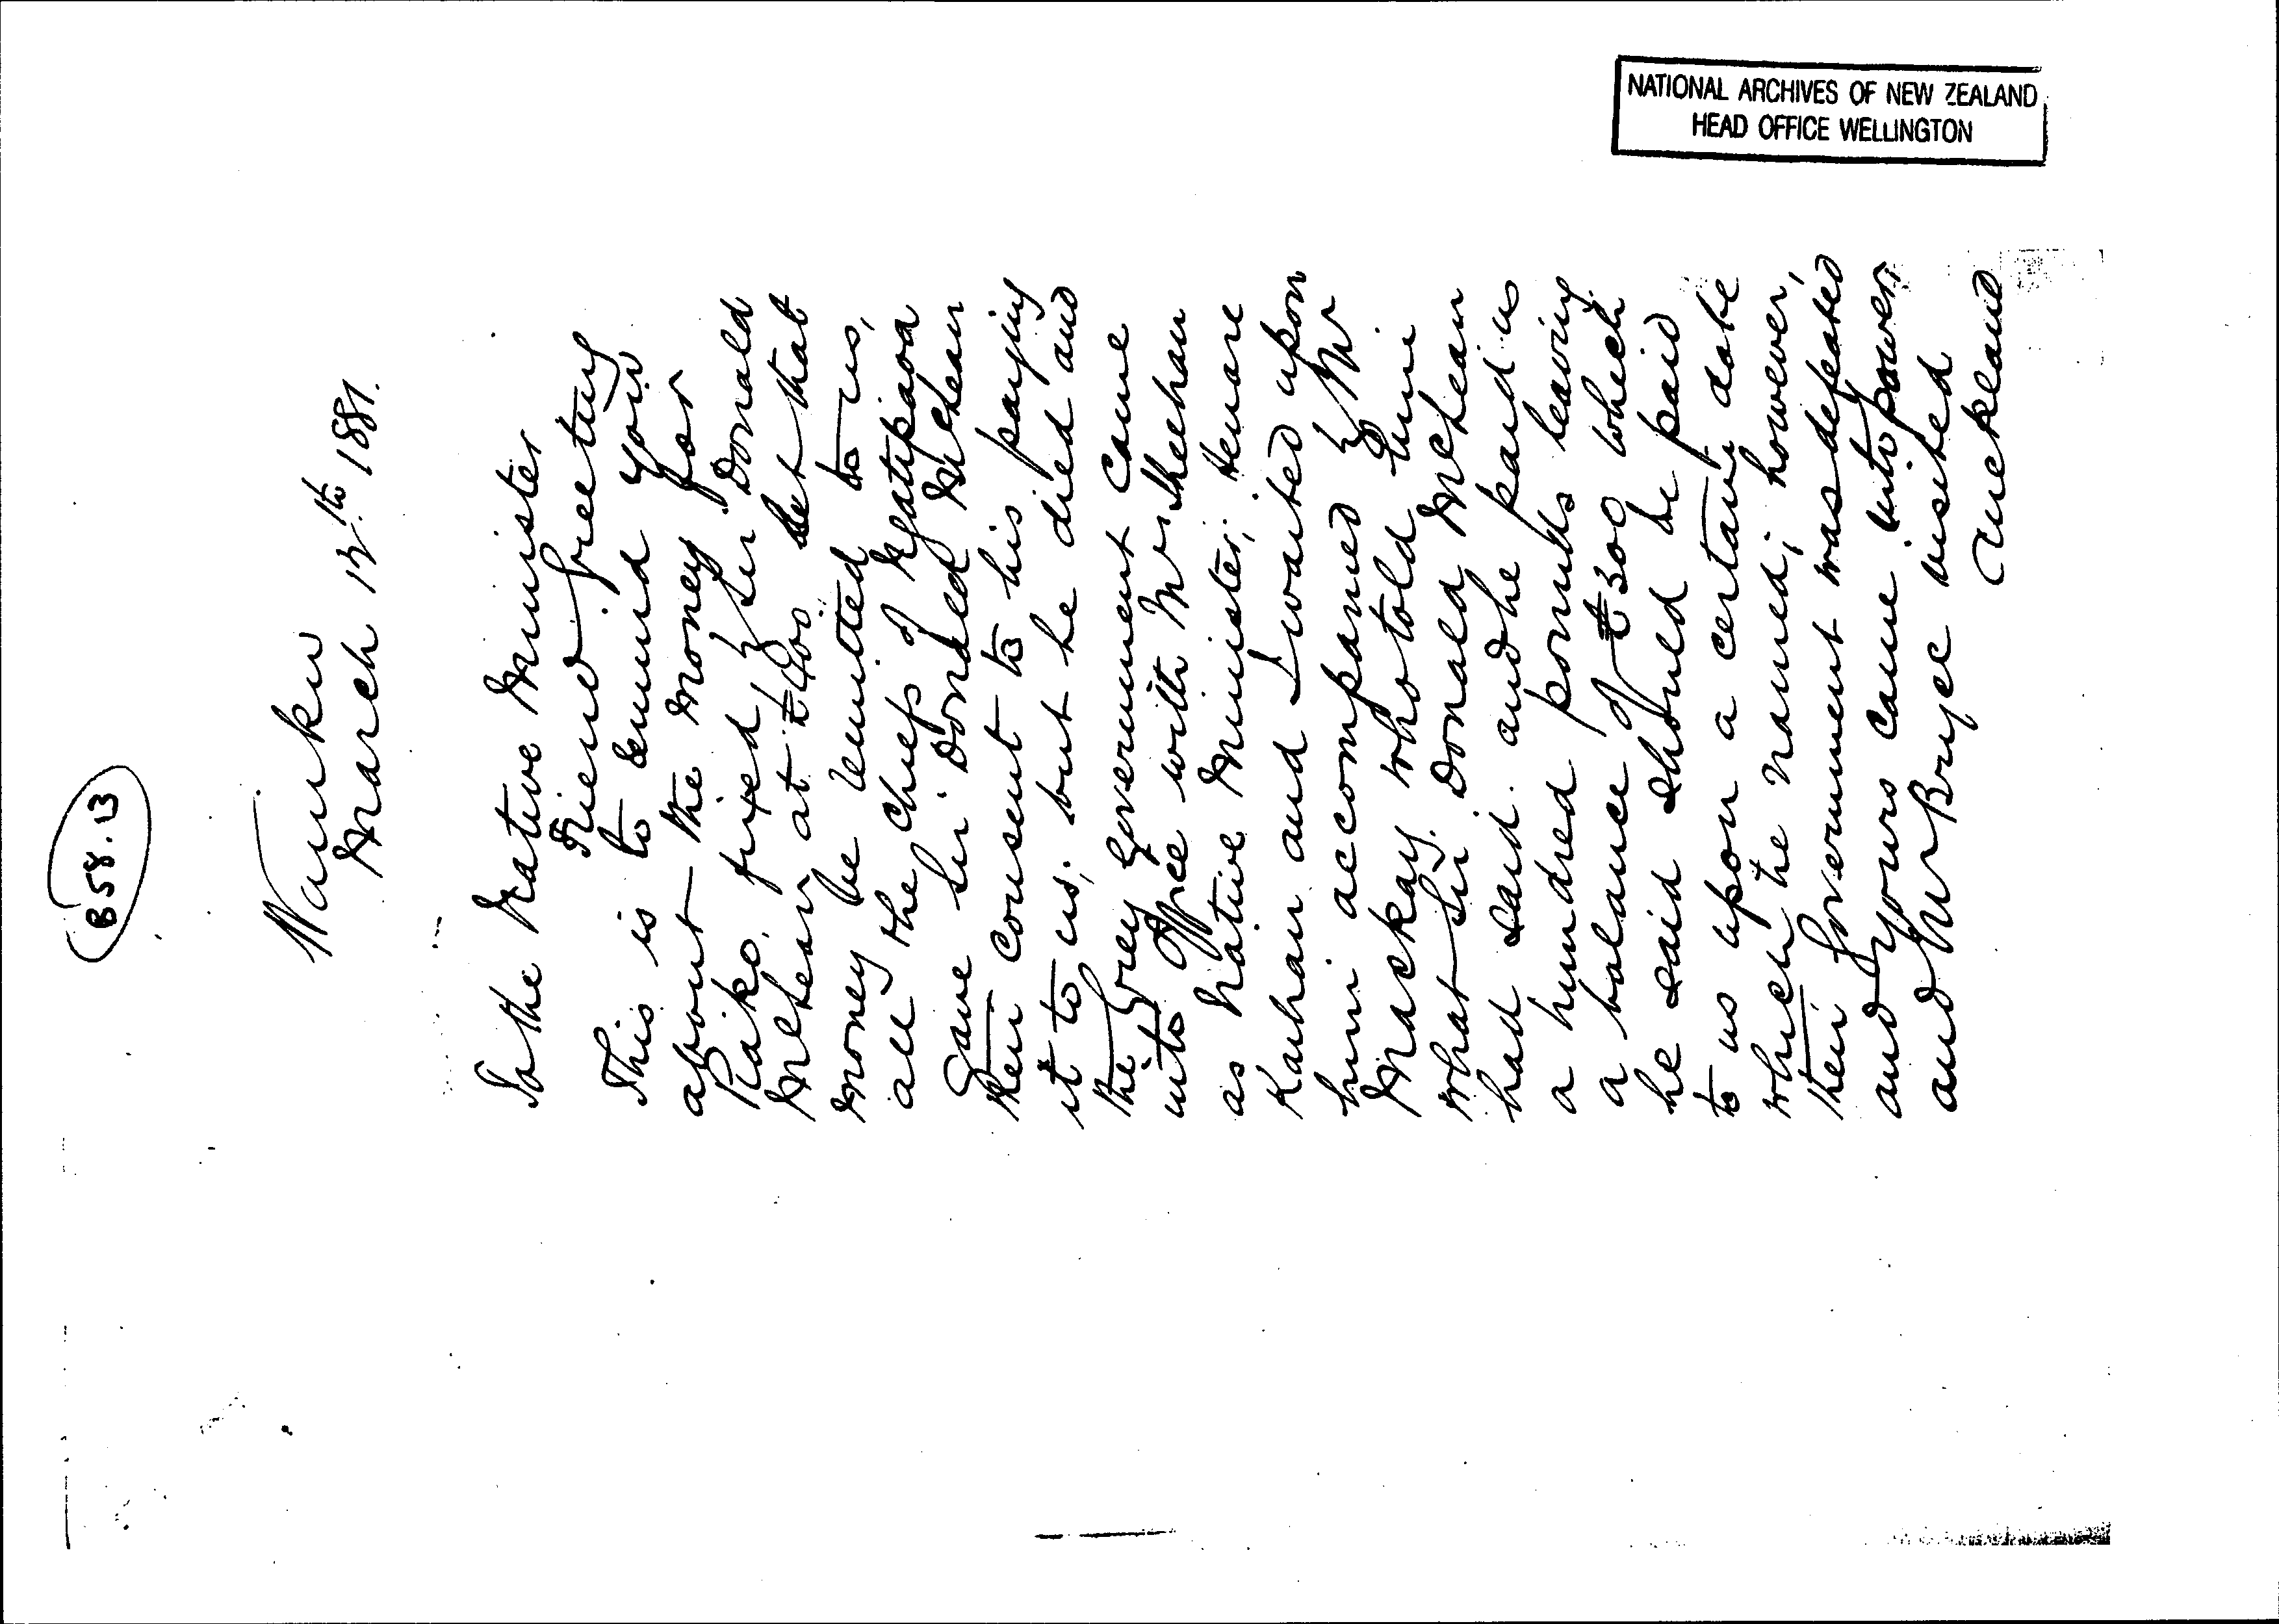 NATIONAL ARCHIVES OF NEW ZEALAND
HEAD OFFICE WELLINGTON
B58.13
March 12th 1881.
To the Native Minister
Friend. Greeting
This is to remind you
about the money for
Piako, fixed by Sir Donald
McLean at Let that
money be remitted to us,
all the chiefs of Ngatipaoa
gave Sir Donald McLean
their consent to his paying
it to us; but he died and
the Grey Government came
into Office with Mr. Sheehan
as Native Minister; Henare
Kauhau and I waited upon
him accompanied by Mr
Mackay. who told him
what Sir Donald McLean
had said. and he paid us
a hundred pounds leaving
a balance of £300 which
he said should be paid
to us upon a certain date
which he named; however,
their Government was defeated
and yours came into power
and Mr Bryce visited
Auckland